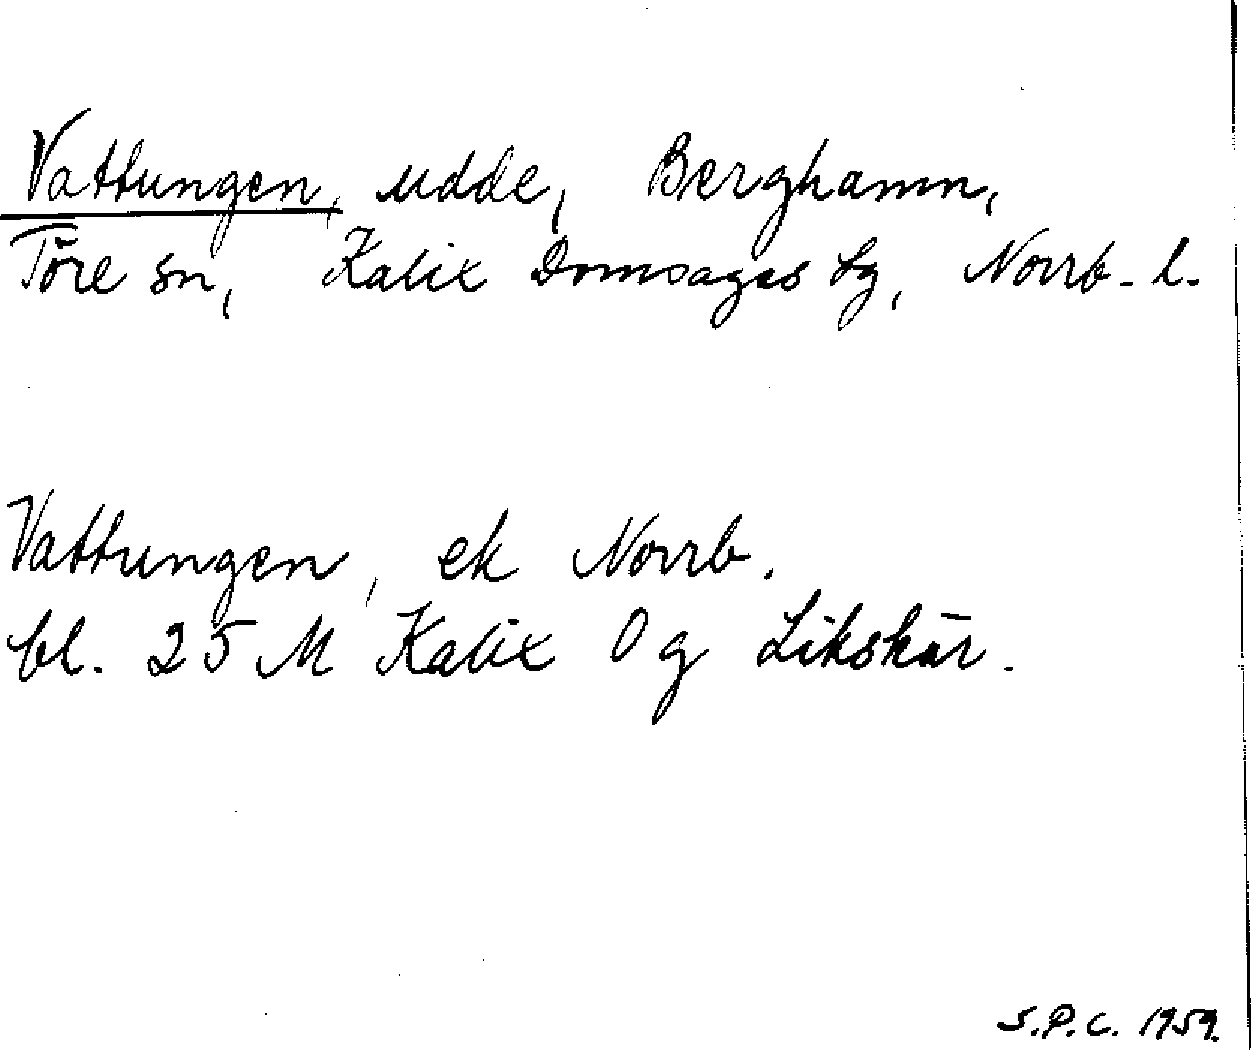 Vattungen, udde, Berghamn,
Töre sn, Kalix Domsagas lg, Norrb. l.
Vattungen, ek Norrb.
bl. 25 M Kalix Og Likskär.
S.P.C. 1959.